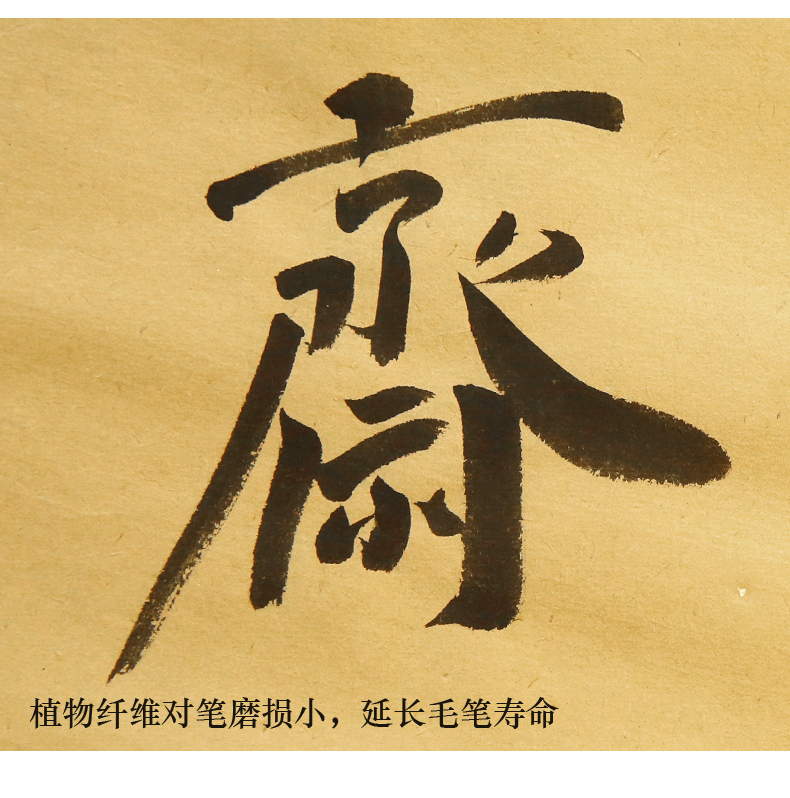 齋
植物纤维对笔磨损小，延长毛笔寿命